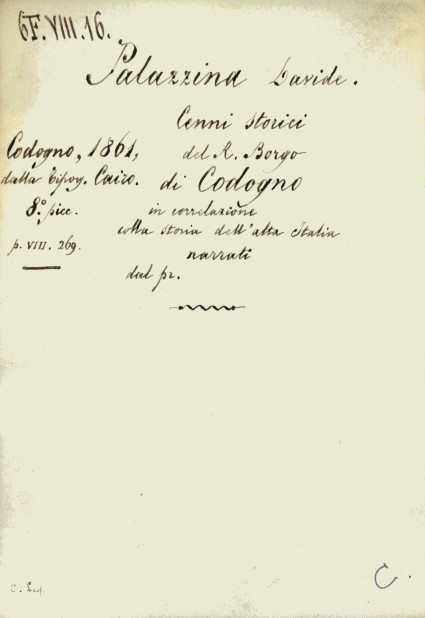 6F.VIII.16.
Palazzina Davide.
Cenni storici
del R. Borgo
di Codogno
in correlazione
colla storia dell'alta Italia
narrati
dal pr.
Codogno, 1861,
dalla Tipog. Cairo.
8.° picc.
p. VIII. 269.
C.